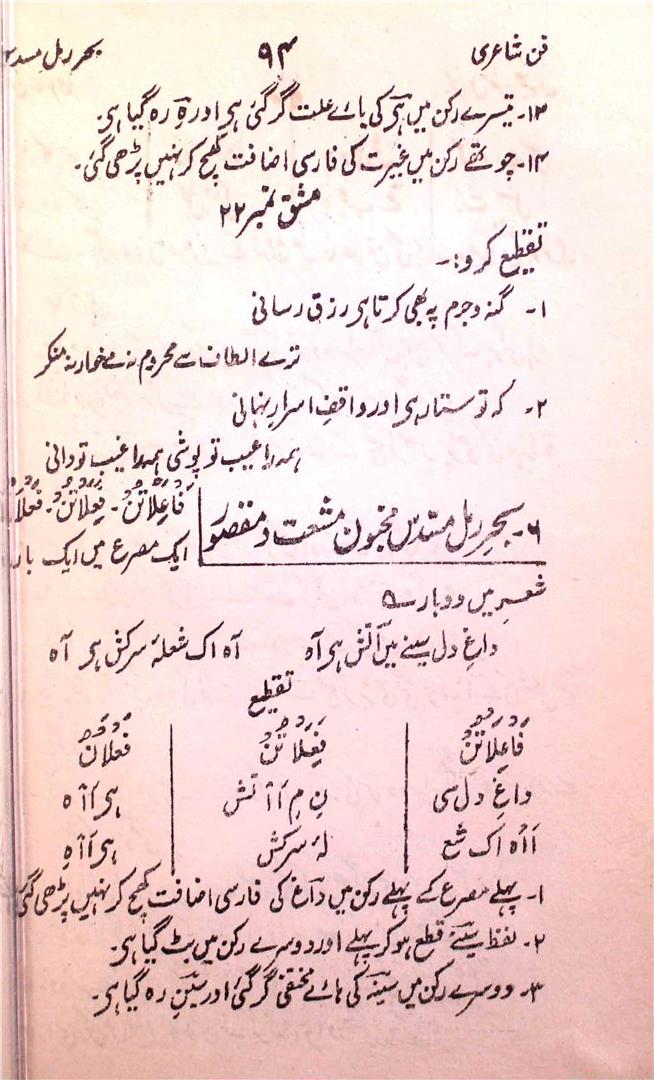 فن شاعری ۹۴ بحر رمل مسد
۱۳۔ تیسرے رکن میں ہی کی یائے علت گر گئی ہی اور ہِ رہ گیا ہی۔
۱۴۔ چوتھے رکن میں غیرت کی فارسی اضافت کھچ کر نہیں پڑھی گئی۔
مشق نمبر ۲۲
تقطیع کرو:۔
۱۔ گنہ و جرم پہ بھی کرتا ہی رزق رسانی
ترے الطاف سے محروم نہ مے خوار نہ منکر
۲۔ کہ تو ستار ہی اور واقفِ اسرارِ نہانی
ہمہ را عیب تو پوشی ہمہ را غیب تو دانی
۶۔ بحر رمل مسدس مخبون مشعث و مقصور
فَاعِلَاتُنْ۔ فَعِلَاتُنْ۔ فَعْلَا
ایک مصرع میں ایک بار
شعر میں دوبارے
داغِ دل سینے میں آتش ہی آہ آہ اک شعلۂ سرکش ہی آہ
تقطیع
فَاعِلَاتُنْ | فَعِلَاتُنْ | فَعْلَانْ
داغِ دل سی | نِ مِ اَاتش | ہی اَاہ
اَاہ اک شع | لۂ سرکش | ہی اَاہ
۱۔ پہلے مصرع کے پہلے رکن میں داغ کی فارسی اضافت کھچ کر نہیں پڑھی گئی
۲۔ لفظ سینے قطع ہو کر پہلے اور دوسرے رکن میں بٹ گیا ہی۔
۳۔ دوسرے رکن میں سینہ کی ہائے مختفی گر گئی اور سینِ رہ گیا ہی۔